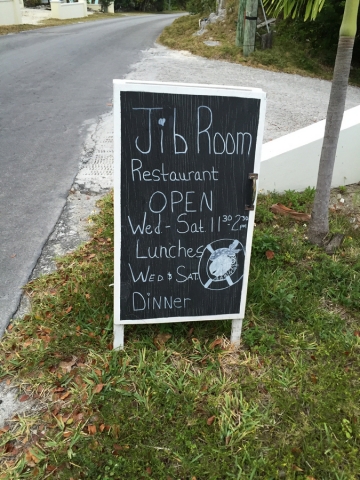 Jib Room
Restaurant
OPEN
Wed - Sat. 11:30-2:30 pm
Lunches
Wed & Sat.
Dinner